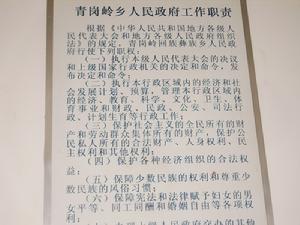 青岗岭乡人民政府工作职责
根据《中华人民共和国地方各级人
民代表大会和地方各级人民政府组织
法》的规定，青岗岭回族彝族乡人民政
府行使下列职权：
（一）执行本级人民代表大会的决议
和上级国家行政机关的决定和命令，发
布决定和命令；
（二）执行本行政区域内的经济和社
会发展计划、预算，管理本行政区域内
的经济、教育、科学、文化、卫生、体
育事业和财政、民政、公安、司法行
政、计划生育等行政工作；
（三）保护社会主义的全民所有的财
产和劳动群众集体所有的财产，保护公
民私人所有的合法财产、人身权利、民
主权利和其他权利；
（四）保护各种经济组织的合法权
益；
（五）保障少数民族的权利和尊重少
数民族的风俗习惯；
（六）保障宪法和法律赋予妇女的男
女平等、同工同酬和婚姻自由等各项权
利；
人民政府交办的其他